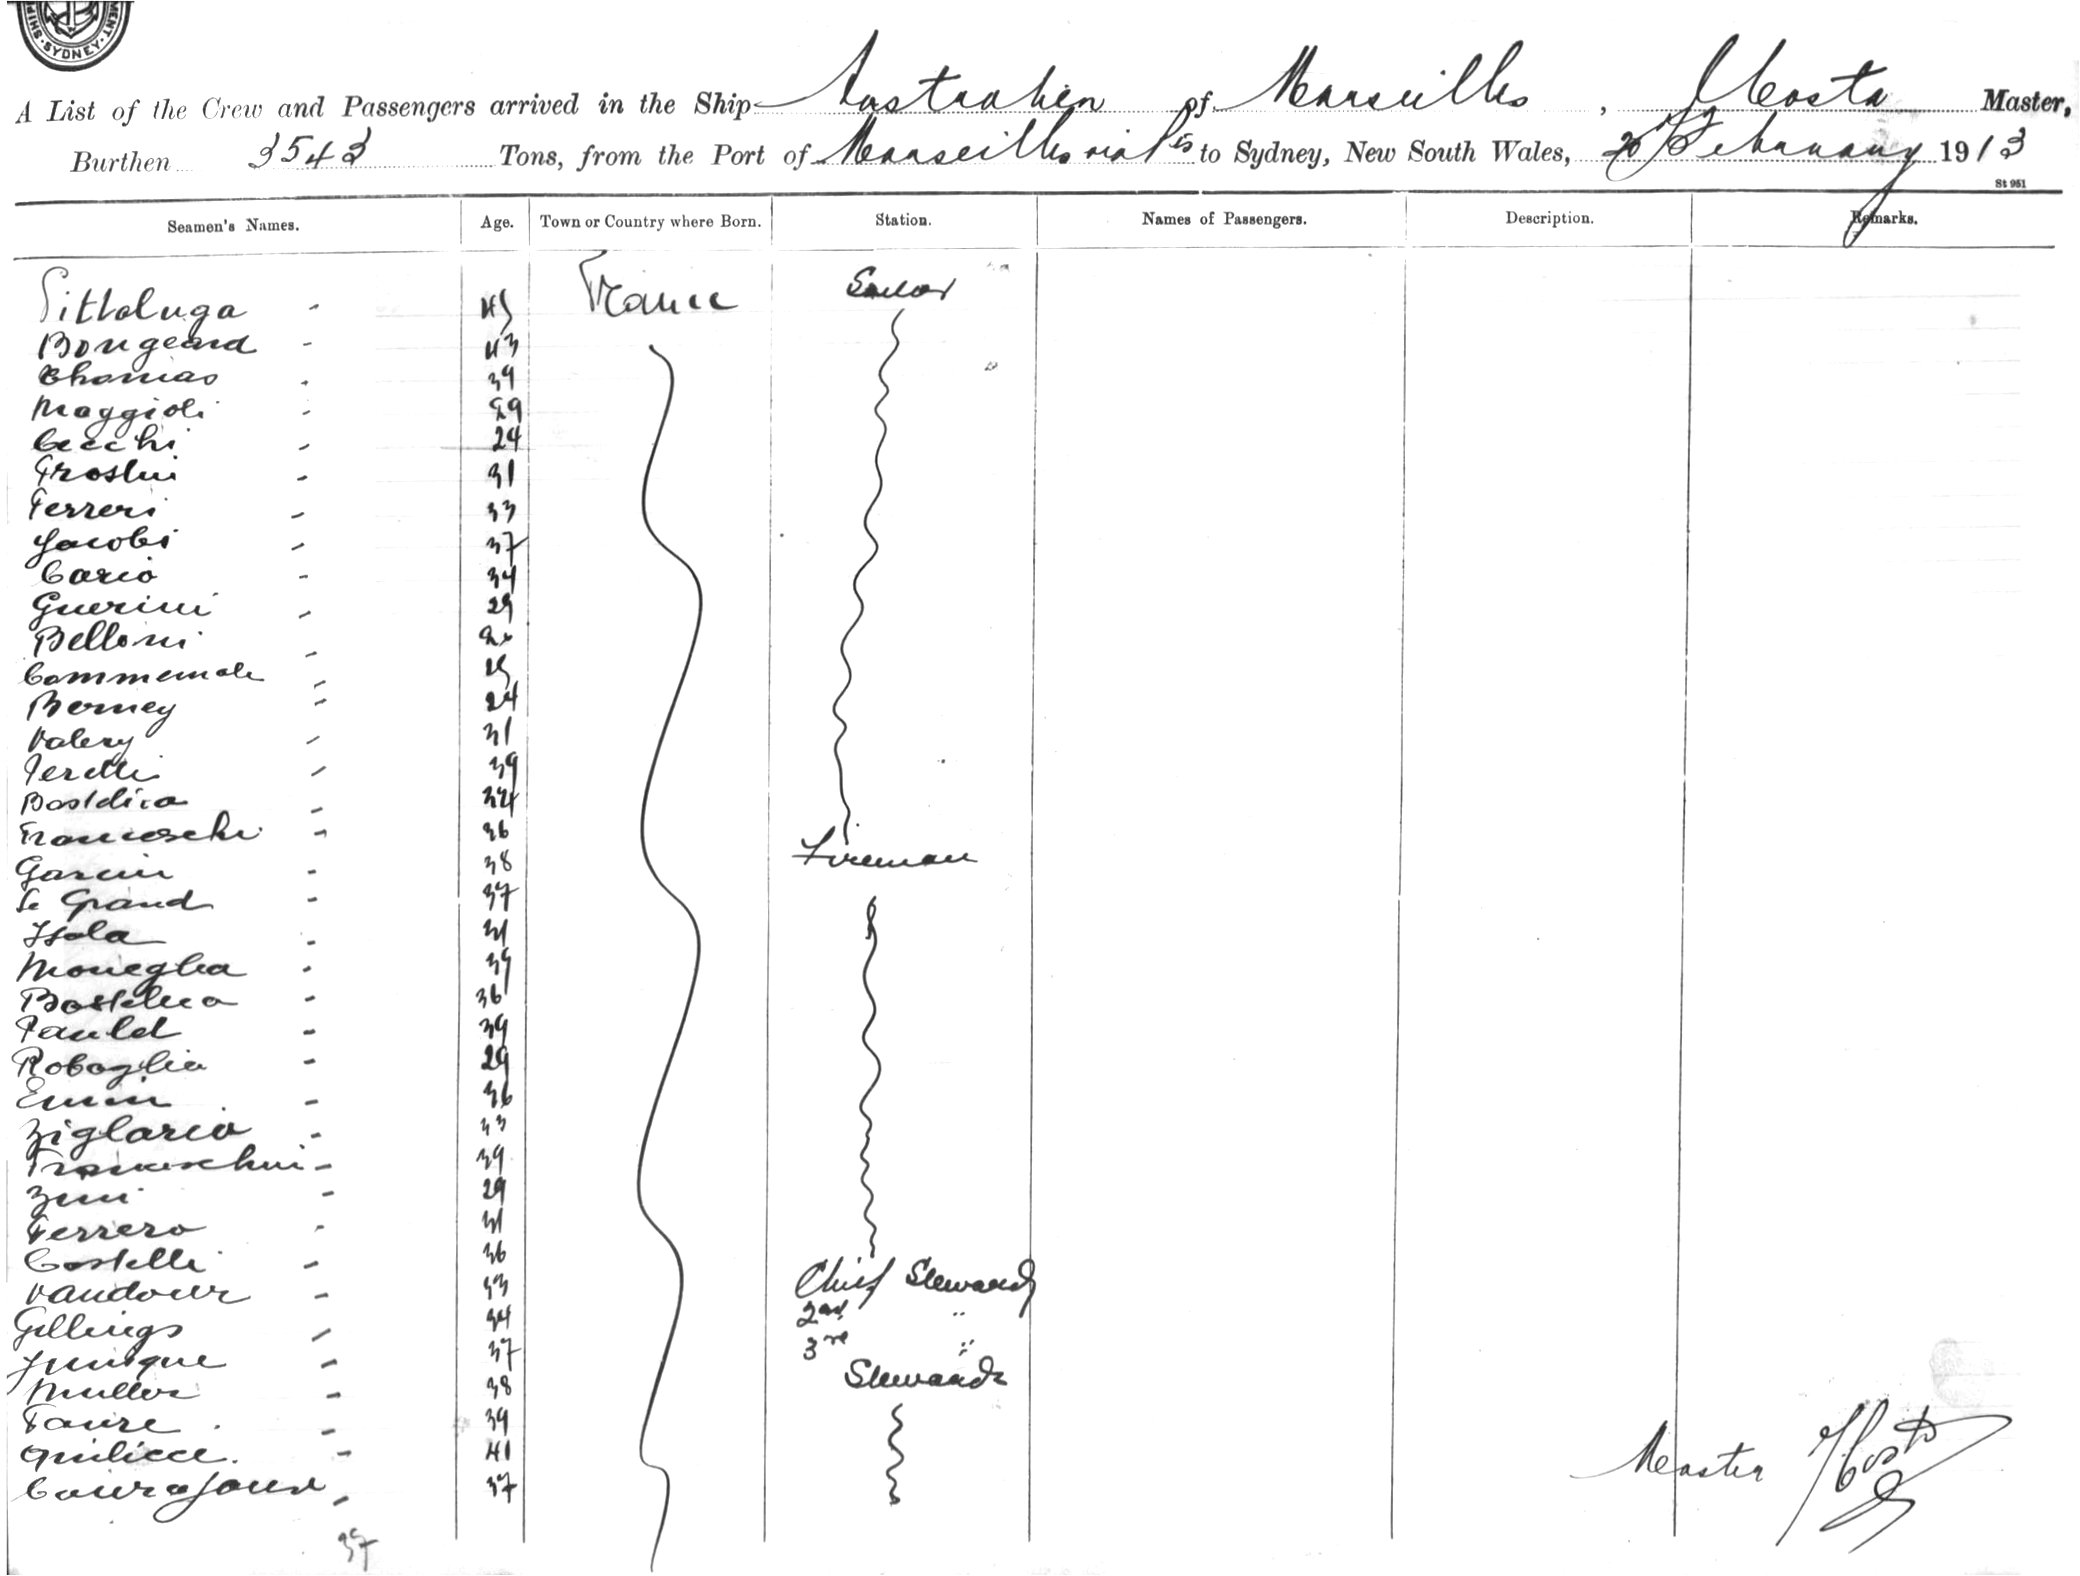 SHIP MENT SYDNEY
A List of the Crew and Passengers arrived in the Ship Australien of Marseilles, J Costa Master,
Burthen 3543 Tons, from the Port of Marseilles via Pts to Sydney, New South Wales, 20 February 1913
St 951
Seamen's Names. Age. Town or Country where Born. Station. Names of Passengers. Description. Remarks.
Pittaluga - 45 France Sailor
Bongeard - 43
Thomas - 39
Maggioli - 29
Cecchi - 24
31
Ferreri - 33
Jacobi - 37
Cario - 34
Guerini - 29
Belloni -
Commemale - 25
Berney - 24
Valery - 31
Peretti - 39
Bastelica - 34
Franceschi - 36 Fireman
Garcin - 38
Le Grand - 37
Isola - 31
Moneglia - 39
Bastelica - 36
Paulet - 39
Robaglia - 29
Emin - 36
Ziglario - 33
Franceschini - 39
Zini - 29
Ferrero - 31
Costelli - 36
Vaudour - 33 Chief Steward
Gellings - 34 2nd "
Junique - 37 3re "
Muller - 38 Stewards
Faure - 39
Quilicci - 41
Courajoux - 37
Master J Costa
37